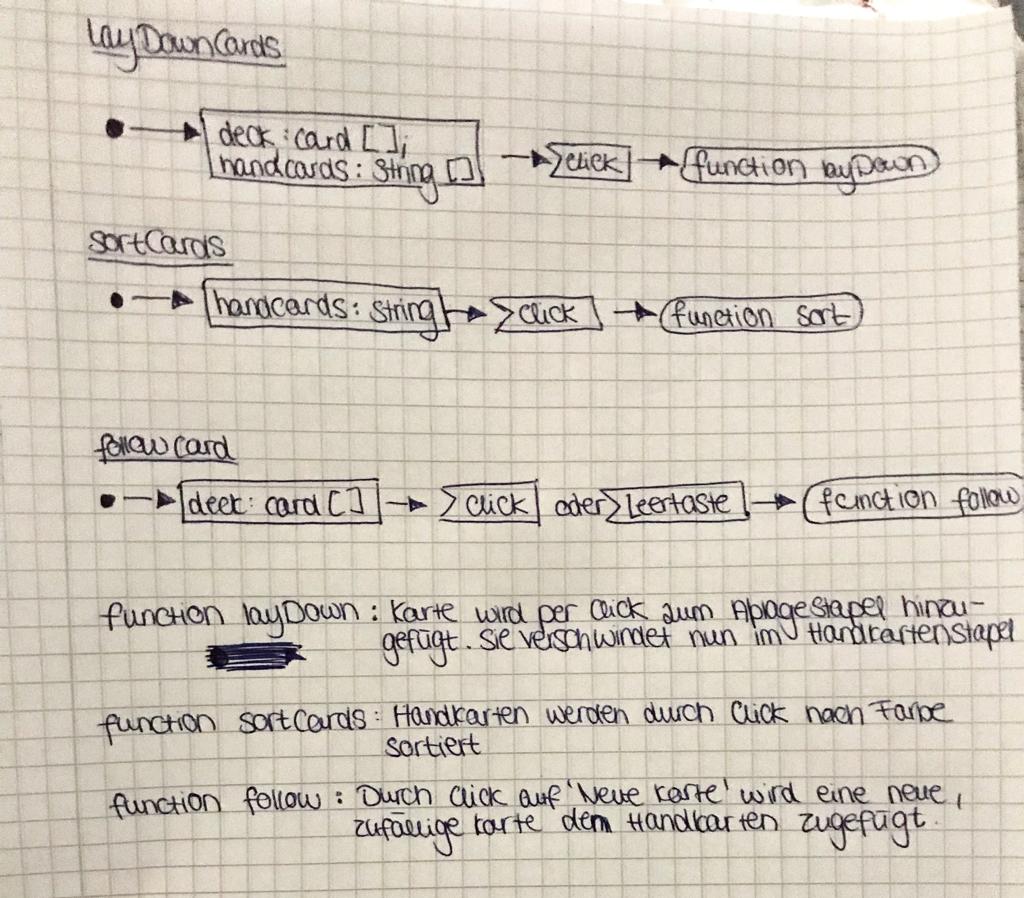 layDownCards
deck : card [ ];
handcards : String [ ]
click
function layDown
sortCards
handcards : String
click
function sort
followcard
deck : card [ ]
click oder leertaste
function follow
function layDown : Karte wird per Click zum Ablagestapel hinzu-
gefügt. Sie verschwindet nun im Handkartenstapel
function sortCards : Handkarten werden durch Click nach Farbe
sortiert
function follow : Durch Click auf 'Neue Karte' wird eine neue,
zufällige Karte dem Handkarten zugefügt.